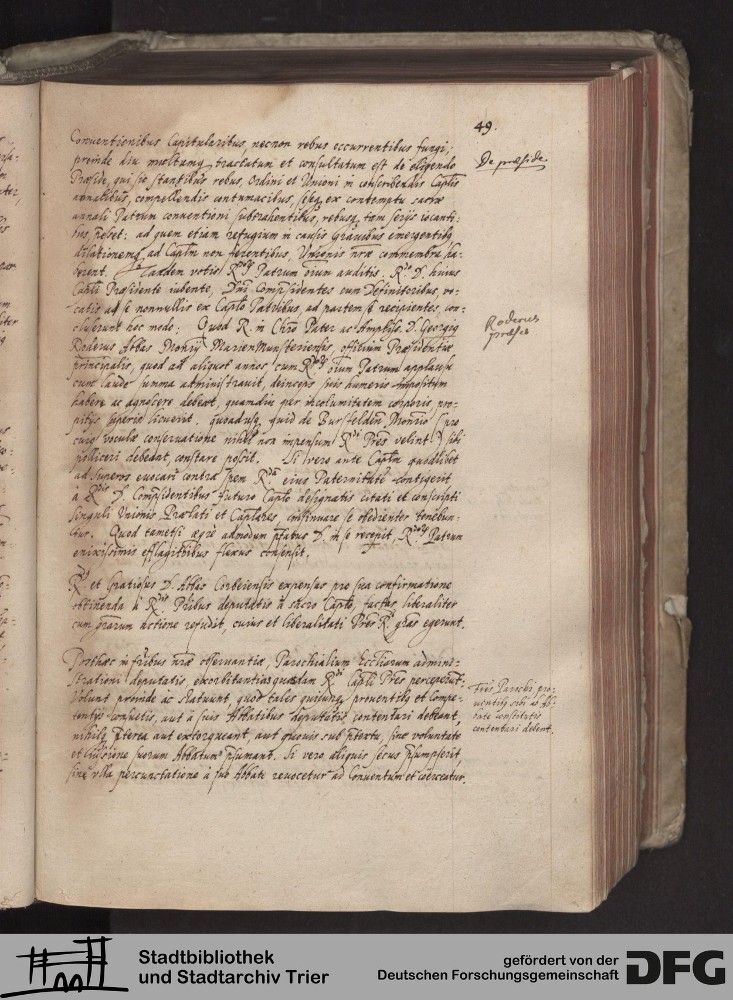 49.
Conventionibus Capitularibus, necnon rebus occurrentibus fungi;
proinde diu multumq tractatum et consultatum est de eligendo
De præside.
Præside, qui sic stantibus rebus, Ordini et Unioni in conscribendis Captis
annalibus, compellendis contumacibus, seseq ex contemptu sacræ
annali Patrum conventioni subtrahentibus, rebusq tam serijs
posset: ad quem etiam refugium in causis gravibus emergentibq
dilationemq ad Captm non ferentibus, Unionis nræ membra ha-
berent. Tandem votis Rdorum Patrum oium auditis. Rmo D. huius
Capti Præsidente iubente, Dni Compsidentes cum Definitoribus, vo-
catis ad se nonnullis ex Capto Patribus, ad partem se recipientes, con-
cluserunt hoc modo: Quod R. in Chro Pater ac Ampliss. D. Georgig
Roderus
præses
Roderus Abbas Monrij MarienMunsteriensis, officium Præsidentiæ
principalis, quod ad aliquot annos cum Rdorum oium Patrum applausu
cum laude summa administravit, deinceps suis humeris impositum
habere ac agnoscere debeat, quamdiu per incolumitatem corporis, pro-
pitijs superis licuerit. quoadusq quid de Bursfelden Monrio (pro
cuius voculæ conservatione nihil non impensum Rdi Pres velint) sibi
polliceri debeat, constare possit. Si vero ante Captm quodlibet
ad superos evocari contra spem Rdam eius Paternitatem contigerit
à Rdis D. Compsidentibus futuro Capto designatis citati et conscripti
singuli Unionis Prælati et Capitulares, insinuare se obedienter tenebun-
tur. Quod tametsi ægre admodum pfatus D. in se recepit, Rdorum Patrum
enixissimis efflagitibus flexus consensit.
R. et Gratiosus D. Abbas Corbeiensis expensas pro sua confirmatione
obtinenda à Rdis Pribus deputatis à sacro Capto, factas, liberaliter
cum grarum actione refudit, cuius et liberalitati Pres Rdi gras egerunt.
Posthæc in fribus nræ observantiæ, Parochialium Eccliarum admini-
strationi deputatis, exorbitantias quasdam Rdi Capti Pres perceperunt:
Frēs Parochi pro-
ventibq sibi ab Ab-
bate constitutis
contentari debent.
Volunt proinde ac statuunt, quod tales quicunq proventibq et compe-
tentijs consuetis, aut à suis Abbatibus deputatis, contentari debeant,
nihilq pterea aut extorqueant, aut quovis sub ptextu, sine voluntate
et licentia suorum Abbatum psumant. Si vero aliquis secus psumpserit,
sine ulla percunctatione à suo Abbate revocetur ad Conventum et coërceatur.
Stadtbibliothek
und Stadtarchiv Trier
gefördert von der
Deutschen Forschungsgemeinschaft
DFG